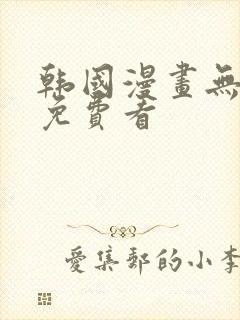 韩國漫畫無
免費看
愛集郵的小李